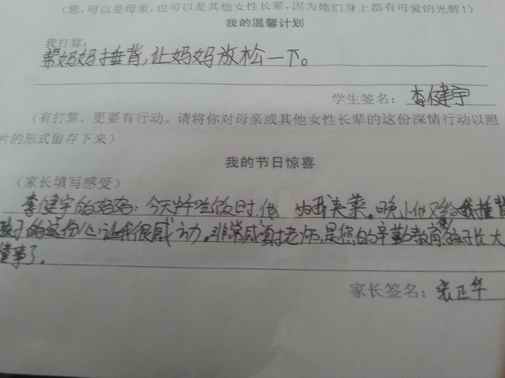 (您,可以是母亲,也可以是其他女性长辈,因为她们身上都有可爱的光辉!)
我的温馨计划
我打算:
帮妈妈捶背,让妈妈放松一下。
学生签名: 李健宇
(有打算,更要有行动。请将你对母亲或其他女性长辈的这份深情行动以照
片的形式留存下来)
我的节日惊喜
(家长填写感受)
李健宇的妈妈:今天中午吃饭时,他 夹菜。晚上他又给我捶背
孩子的这份心让我很感动。非常感谢老师,是您的辛勤教育孩子长大
懂事了。
家长签名: 张正华